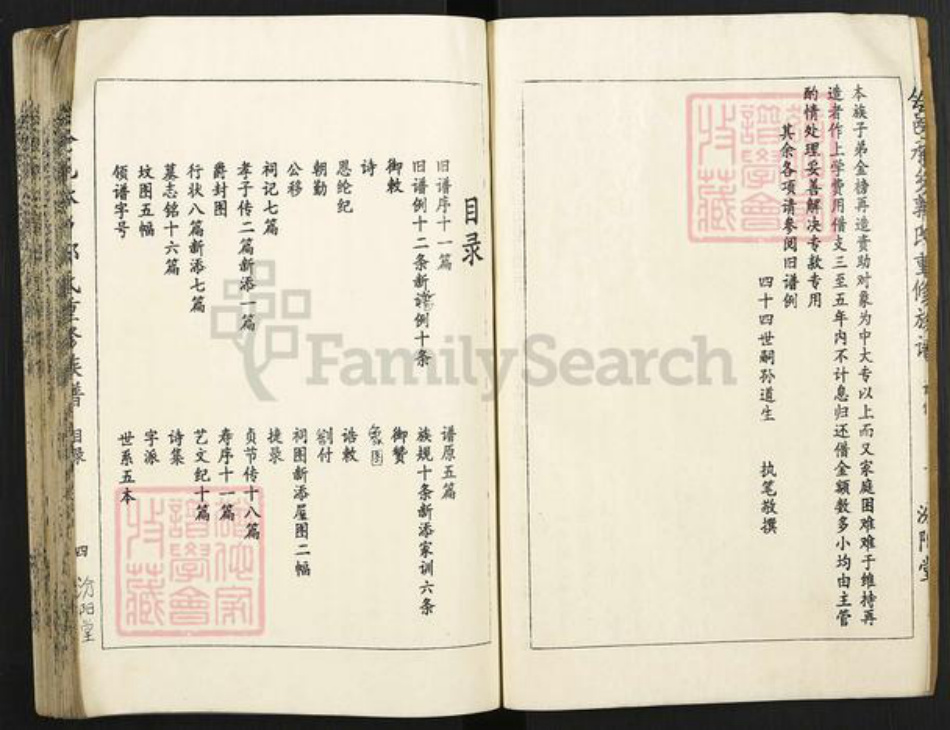 本族子弟金榜再造责助对象为中大专以上而又家庭困难难于维持再
造者作上学费用借支三至五年内不计息归还借金额数多小均由主管
酌情处理妥善解决专款专用
其余各项请参阅旧谱例
四十四世嗣孙道生 执笔敬撰
重修族谱
汾阳堂
目录
旧谱序十一篇
谱原五篇
旧谱例十二条新谱例十条
族规十条新添家训六条
御敕
御赞
诗
像图
恩纶纪
诰敕
朝勤
劄付
公移
祠图新添屋图二幅
祠记七篇
捷录
孝子传二篇新添一篇
贞节传十八篇
爵封图
寿序十一篇
行状八篇新添七篇
艺文纪十篇
墓志铭十六篇
诗集
坟图五幅
字派
领谱字号
世系五本
氏重修族谱
目录
四
汾阳堂
收藏
譜學會
FamilySearch